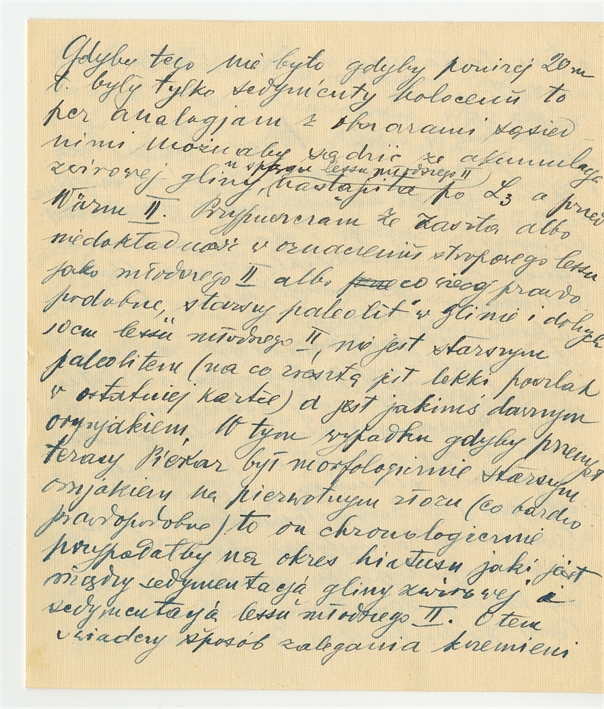 Gdyby tego nie było gdyby poniżej 20 m
t. były tylko sedymenty holoceńs to
per analogiam z obszarami sąsied
nimi możnaby sądzić że akumulacja
w spągu lessu młodszego II
żwirowej gliny, nastąpiła po L3 a przed
Würm II. Przypuszczam że zaszła albo
niedokładność w oznaczeniu stropowego lessu
jako młodszego II albo co więcej prawdo
podobne, "starszy paleolit" w glinie i dolnych
10cm lessu młodszego II, nie jest starszym
paleolitem (na co zresztą jest lekki poszlak
w ostatniej kartce) a jest jakimś dawnym
oryniakiem. W tym wypadku gdyby przemysł
terasy Piekar był morfologicznie starszym
orniakiem na pierwotnym złożu (co bardzo
prawdopodobne) to on chronologicznie
przypadałby na okres hiatusu jaki jest
między sedymentacją gliny żwirowej i
sedymentacją lessu młodszego II. O tem
świadczy sposób zalegania krzemieni